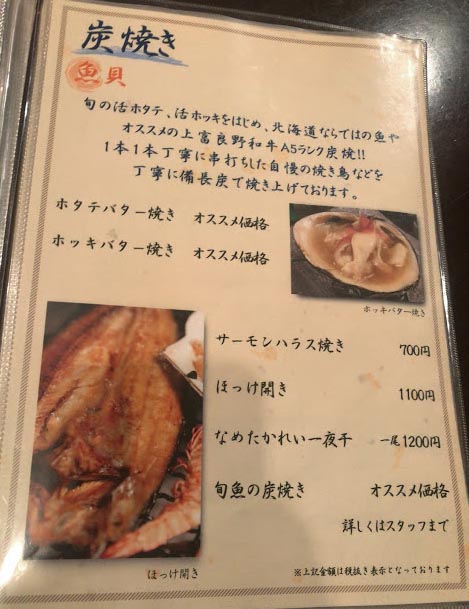 炭焼き
魚貝
旬の活ホタテ、活ホッキをはじめ、北海道ならではの魚や
オススメの上富良野和牛A5ランク炭焼!!
1本1本丁寧に串打ちした自慢の焼き鳥などを
丁寧に備長炭で焼き上げております。
ホタテバター焼き オススメ価格
ホッキバター焼き オススメ価格
ホッキバター焼き
サーモンハラス焼き 700円
ほっけ開き 1100円
なめたかれい一夜干 一尾1200円
旬魚の炭焼き オススメ価格
詳しくはスタッフまで
ほっけ開き
※上記金額は税抜き表示となっております